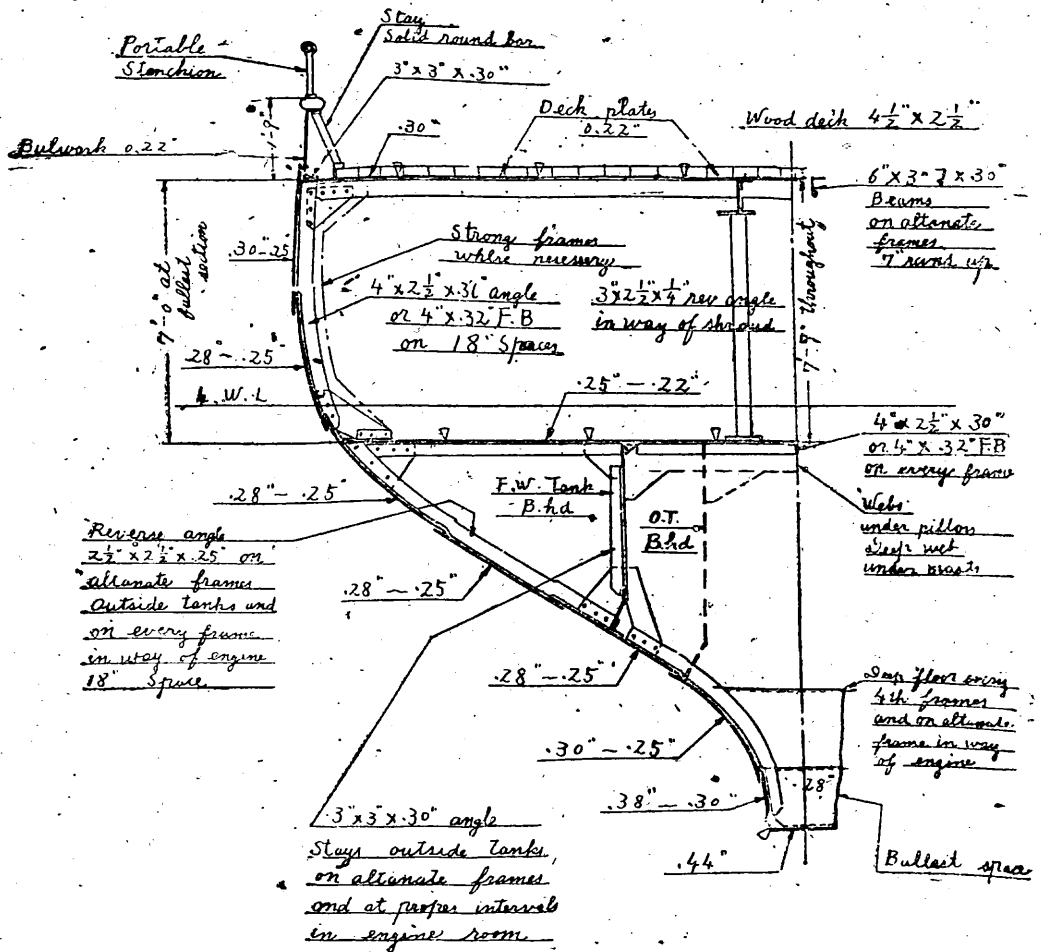 Stay
Solid round bar
Portable
Stenchion
3" x 3" x .30"
1'-9"
Bulwork 0.22"
.30"
Deck plates
0.22"
Wood deck 4 1/2" x 2 1/2"
6" x 3" x .30"
Beams
on altanate
frames
7" round up
7'-0" at
fullest
section
.30-.25"
Strong frames
where necessary
4" x 2 1/2" x .31" angle
or 4" x .32" F.B
on 18" Spaces
3" x 2 1/2" x 1/4" rev angle
in way of shroud
7'-9" throughout
.28" ~ .25"
L.W.L
.25" — .22"
4" x 2 1/2" x .30"
or 4" x .32" F.B
on every frame
.28" ~ .25"
F.W. Tank
B.hd
O.T.
B.hd
Webs
under pillors
deep web
under masts
Reverse angle
2 1/2" x 2 1/2" x .25" on
altanate frames
Outside tanks and
on every frame
in way of engine
18" Space
.28" ~ .25"
.28" ~ .25"
Deep floor every
4th frames
and on altanate
frame in way
of engine
.30" ~ .25"
.28"
.38" ~ .30"
3" x 3" x .30" angle
Stays outside Tanks,
on altanate frames
and at proper intervals
in engine room
.44"
Ballast space